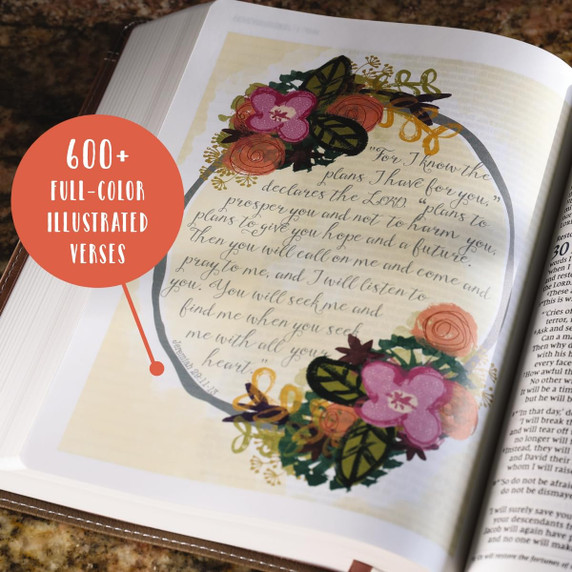 600+
FULL-COLOR
ILLUSTRATED
VERSES
"For I know the
plans I have for you,"
declares the LORD, "plans to
prosper you and not to harm you,
plans to give you hope and a future.
Then you will call on me and come and
pray to me, and I will listen to
you. You will seek me and
find me when you seek
me with all your
heart."
Jeremiah 29:11-13
30
words I
when I
and rest
the LORD.
These a
"Cries of
terror,
Ask and se
Can a ma
Then why d
with his h
every face
How awful th
No other w
It will be a
but he will b
"In that day,' d
'I will break t
and will tear off
no longer will
Instead, they will
and David their
whom I will raise
So do not be afrai
do not be dismaye
I will surely save you
your descendants fr
Jacob will again have p
and no one will mak
will restore the fortunes of